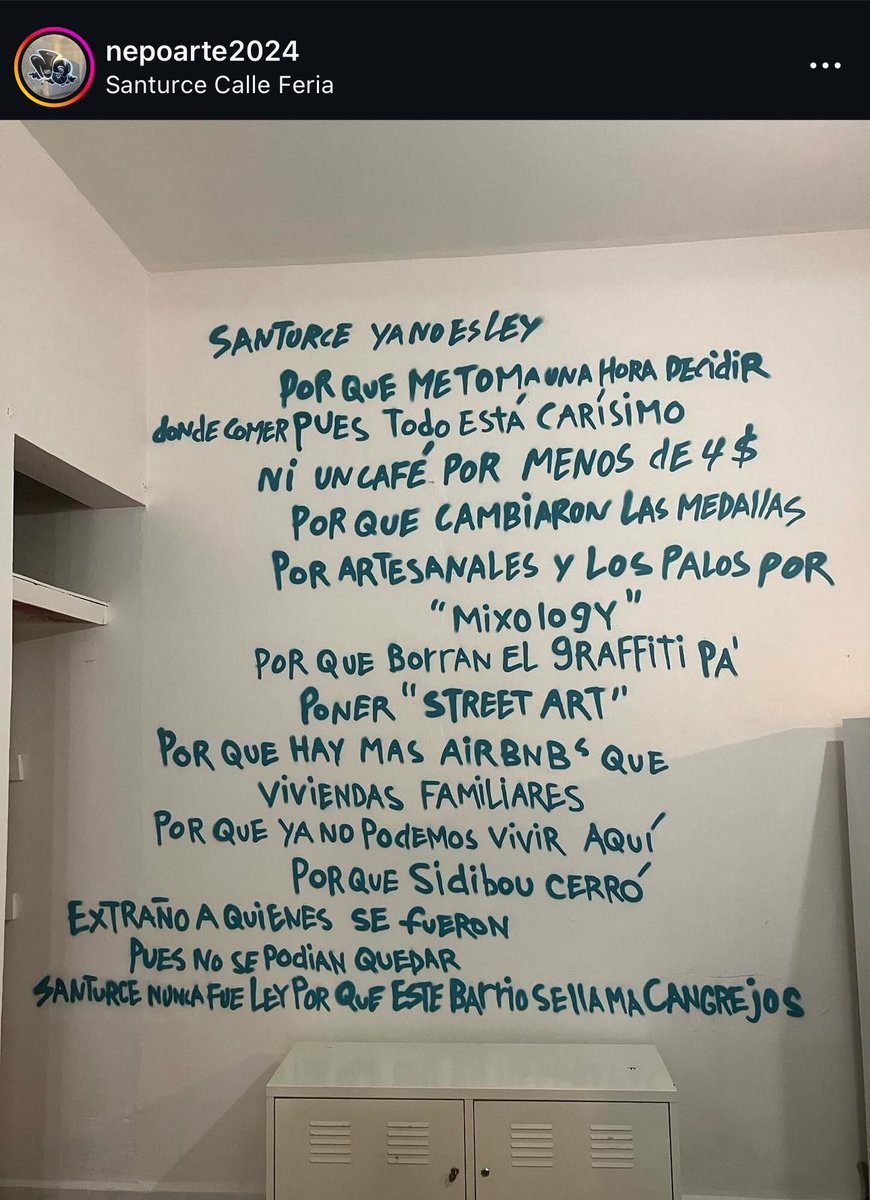 nepoarte2024
Santurce Calle Feria
SANTURCE YA NO ES LEY
POR QUE ME TOMA UNA HORA DECIDIR
DONDE COMER PUES TODO ESTÁ CARÍSIMO
NI UN CAFÉ POR MENOS DE 4 $
POR QUE CAMBIARON LAS MEDALLAS
POR ARTESANALES Y LOS PALOS POR
"MIXOLOGY"
POR QUE BORRAN EL GRAFFITI PA'
PONER "STREET ART"
POR QUE HAY MAS AIRBNBS QUE
VIVIENDAS FAMILIARES
POR QUE YA NO PODEMOS VIVIR AQUÍ
POR QUE SIDIBOU CERRÓ
EXTRAÑO A QUIENES SE FUERON
PUES NO SE PODIAN QUEDAR
SANTURCE NUNCA FUE LEY POR QUE ESTE BARRIO SE LLAMA CANGREJOS